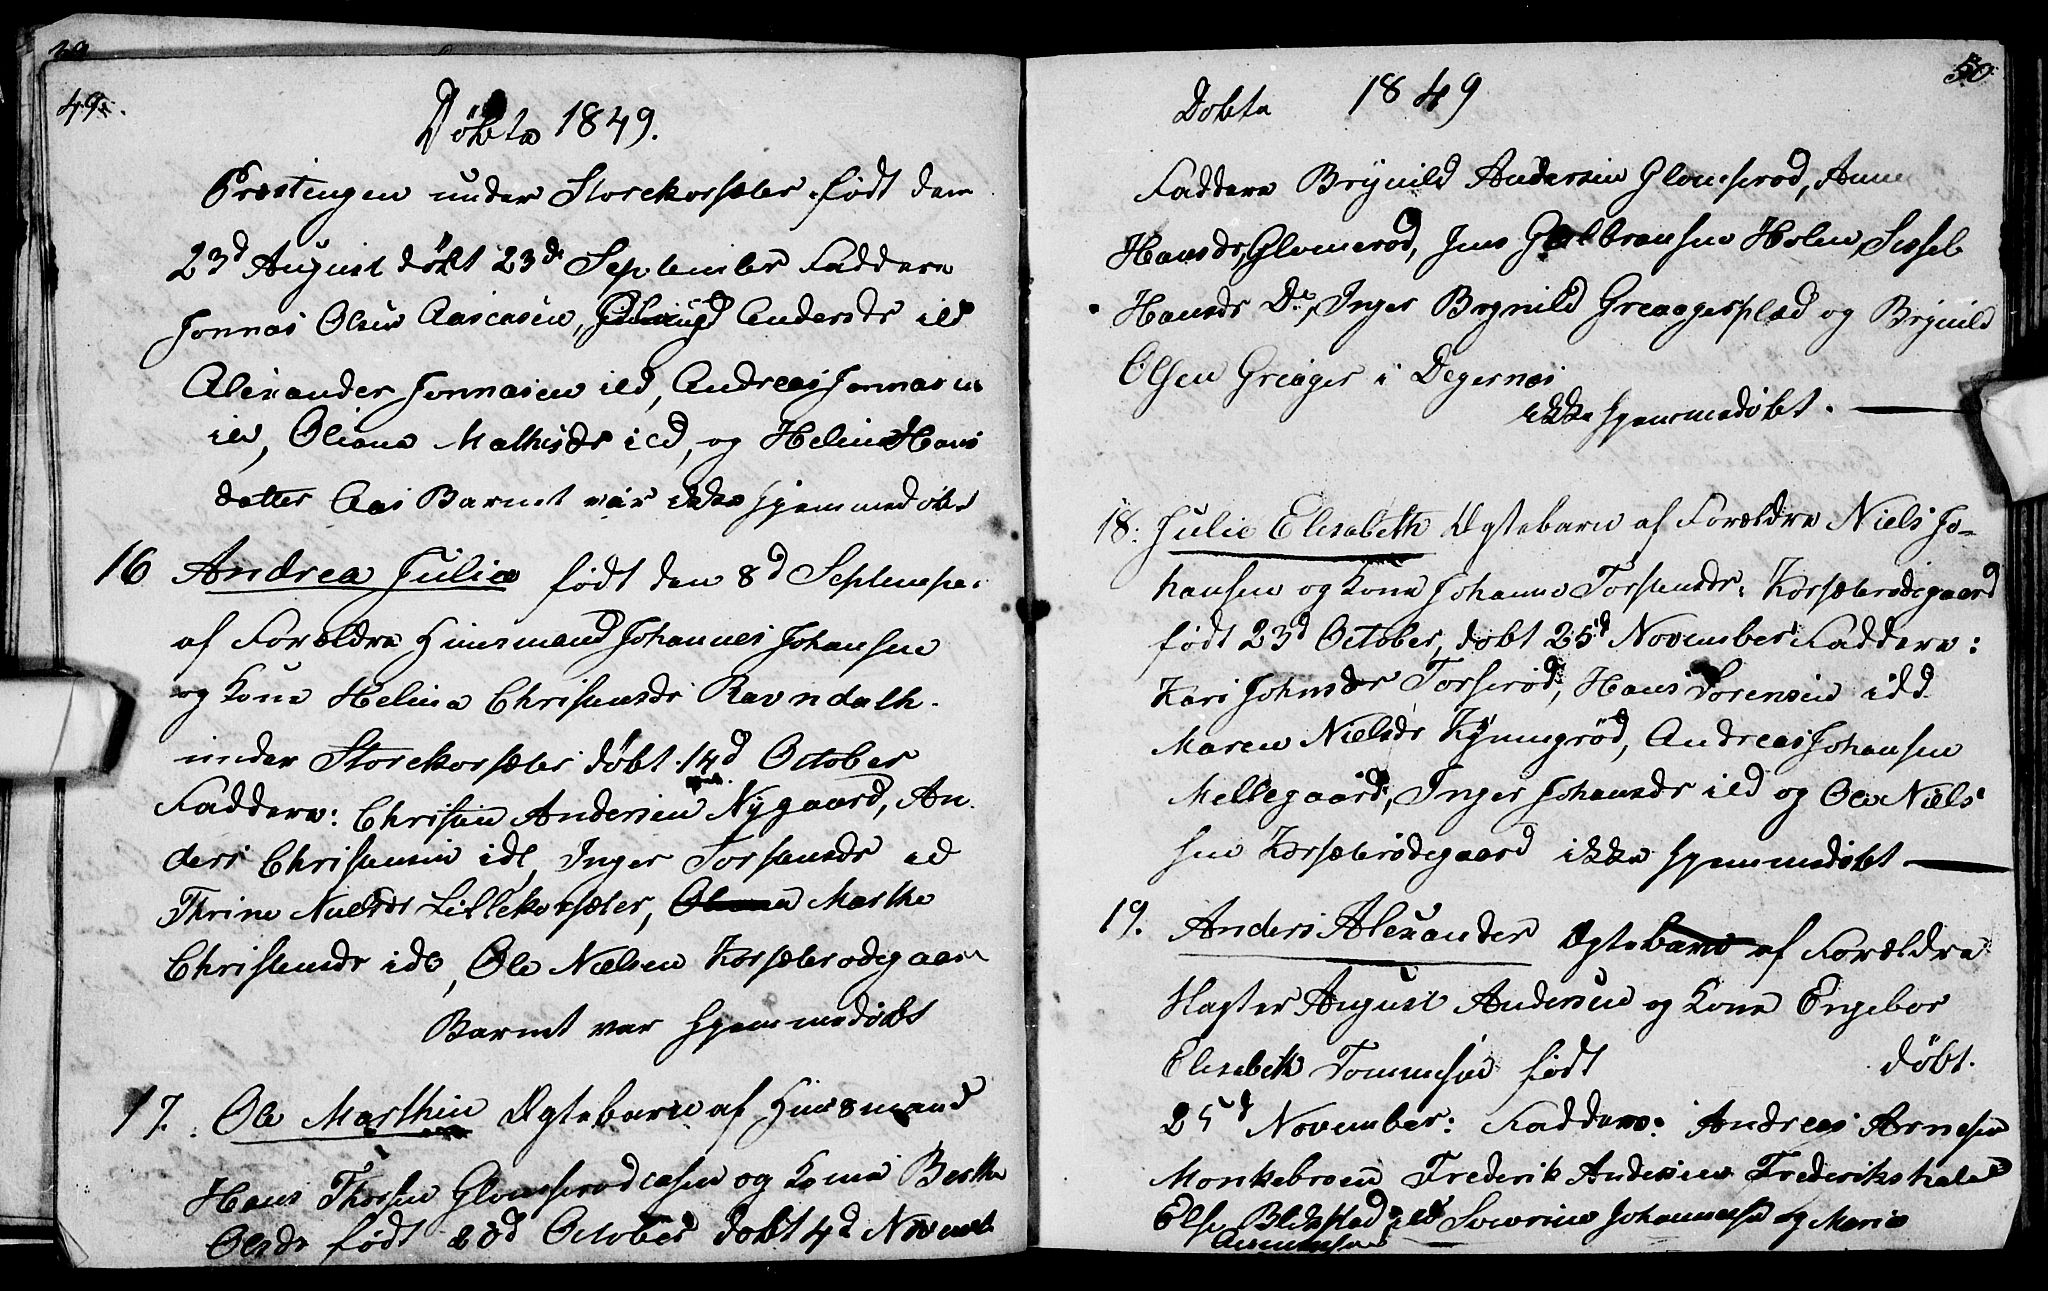 49.
Döbte 1849.
Præstengen under Storekorsæter født den
23d August døbt 23de September Faddere
Jonnas Olsen Aaseasen, Andersdr ild
Alexander Jonnasen ild, Andreas Jonnasen
ild, Oliana Mathisdr ild, og Helina Hans
datter Aas Barnet var ikke hjemmedøbt
16 Andrea Julia født den 8d Septempe.
af Forældre Huusmand Johannes Johansen
og Kone Helina Christensdr Ravndalh.
under Storekorsæter døbt 14d October
Faddere: Christen Andersen Nygaard, An
ders Christensen idl, Inger Torstensdr ed
Thrine Nielsdr Lillekorsæter, Marthe
Christensdr idl, Ole Nielsen Korsæterødegaard
Barnet var hjemmedøbt
17. Ole Marthin Ægtebarn af Huusmand
Hans Thorsen Glomserødeasen og Kone Berthe
Olsdr født 28d October døbt 4d Novemb
50
Dobte 1849
Faddere Brynild Andersen Glomserød, Anne
Hansdr, Glomerød, Jens Gulbransen Holen, Sissel
Hansdr Do, Inger Brynild Greaagerplad og Brynild
Olsen Greager i Degernes
ikke hjemmedøbt.
18. Julie Elisabeth Ægtebarn af Forældre Niels Jo-
hansen og Kone Johanne Torstensdr. Korsæterødegaard
født 23d October, døbt 25d November Faddere:
Kari Johnsdr Torserød, Hans Sorensen idd
Maren Nielsdr Kynngrød, Andreas Johansen
Mellegaard, Inger Johansdr ild og Ole Niels
sen Korsæterødegaard ikke hjemmedøbt
19. Anders Alexander Ægtebarn af Forældre
Slagter August Andersen og Kone Engebor
Elisabeth Tommesen født døbt.
25d November: Faddere: Andreas Arnesen
Monkebroen Frederik Andersen Frederikshald
Else Blikstad ild Severine Johannesen og Maria